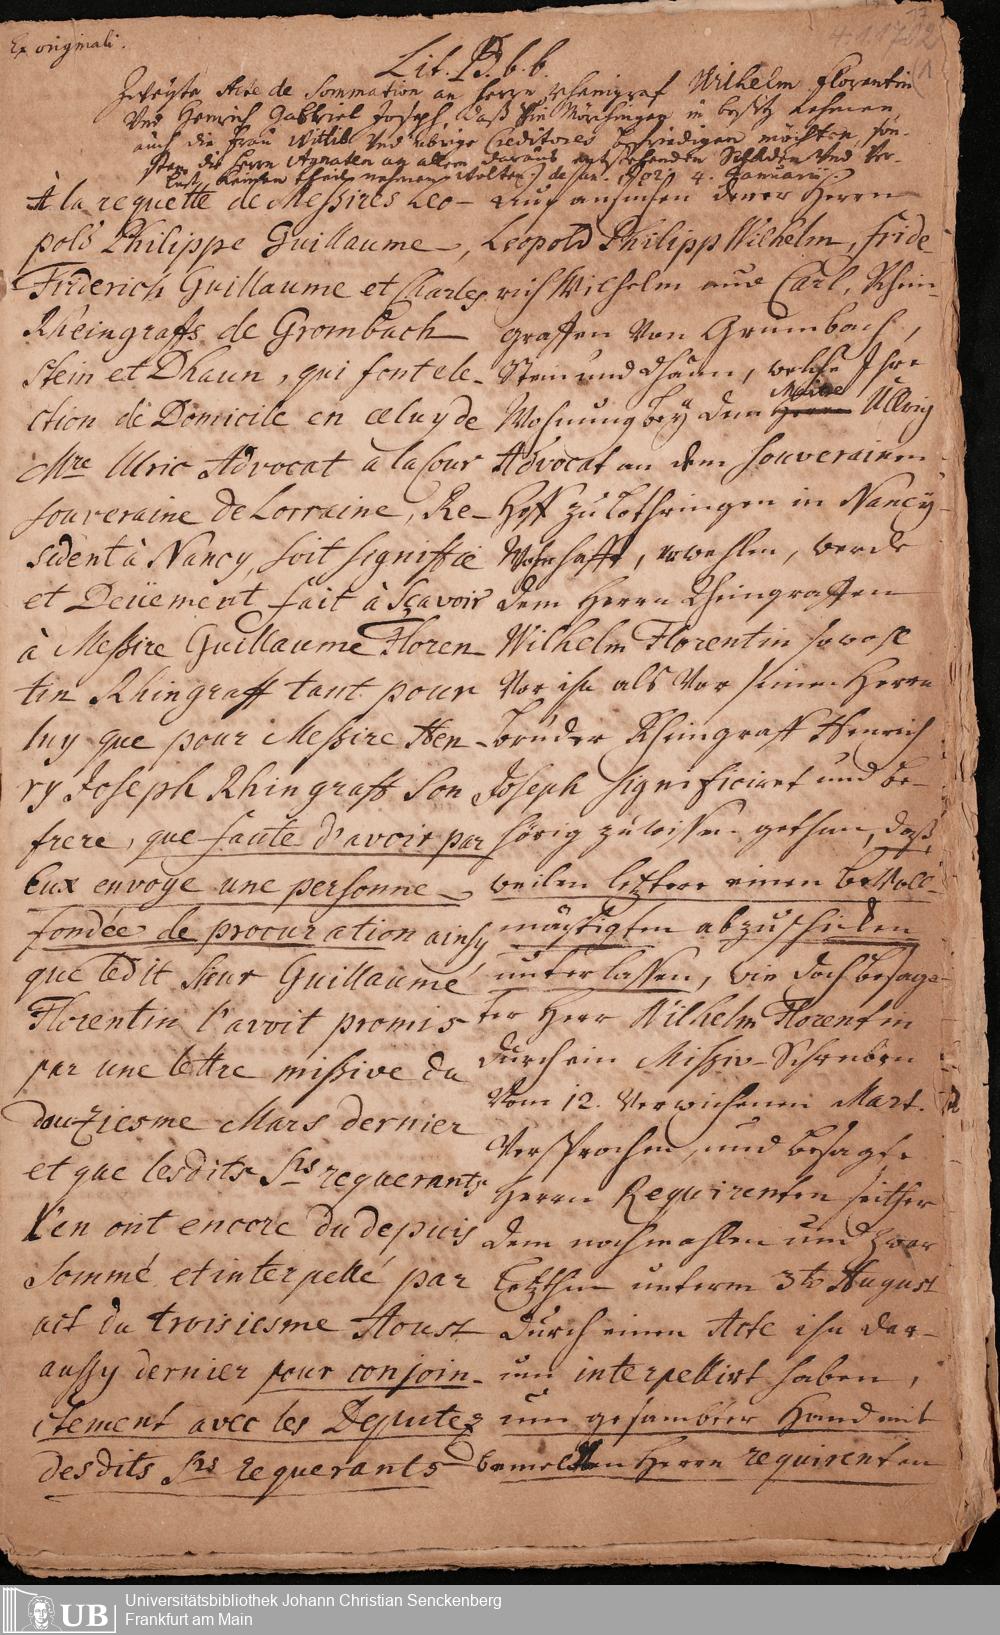 Ex originali.
Lit. B. b. b.
Zweyte Acte de Sommation an Herrn Rheingraf Wilhelm Florentin
Und Henrich Gabriel Joseph, daß Sie Mörchingen in besitz nehmen,
auch die Frau Wittib Und übrige Creditores befriedigen möchten, son-
sten die Herrn Agnaten an allem daraus entstehenden Schaden Und Ver-
lust keinen theil nehmen wolten. de an. 4. Januarii.
A la requette de Messires Leo-
pold Philippe Guillaume,
Friderich Guillaume et Charles
Rheingraffs de Grombach
Stein et Dhaun, qui font ele-
ction de Domicile en celuy de
Mre Ulric Advocat a la Cour
souveraine de Lorraine, Re-
sident à Nancy, soit signiffié
et Deüement fait à Sçavoir
à Messire Guillaume Floren
tin Rhingraff tant pour
luy que pour Messire Hen-
ry Joseph Rhingraff son
frere, que faute d'avoir par
Eux envoye une personne
fondée de procuration ainsy
que ledit Sieur Guillaume
Florentin l'avoit promis
par une lettre missive du
douziesme Mars dernier
et que lesdits Srs requerants
l'en ont encore du depuis
sommé et interpellé par
act du troisiesme Aoust
aussy dernier pour conjoin-
ctement avec les Deputez
desdits Srs requerants
Auf ansuchen derer Herrn
Leopold Philipp Wilhelm, Fride-
rich Wilhelm und Carl, Rhein-
graffen Von Grumbach,
Stein und Dhaun, welche Ihre
Wohnung bey dem Maitre Ullrig
Advocat an dem souverainen
Hoff zu Lothringen in Nancy
Wohnhafft, erwehlen, werde
dem Herrn Rheingraffen
Wilhelm Florentin sowohl
Vor ihn als Vor seinen Herrn
bruder Rheingraff Henrich
Joseph significiret und be-
hörig zu wissen gethan, daß
weilen letztere einen bevoll-
mächtigten abzuschicken
unterlassen, wie doch besag-
ter Herr Wilhelm Florentin
durch ein Missiv-Schreiben
Vom 12. Verwichenen Mart.
Versprochen, und besagte
Herrn Requirenten seither
dem nochmahlen und zwar
letzthin unterm 3ten August
durch einen Acte ihn dar-
um interpellirt haben,
um gesambter Hand mit
bemelten Herrn requirenten
UB
Universitätsbibliothek Johann Christian Senckenberg
Frankfurt am Main